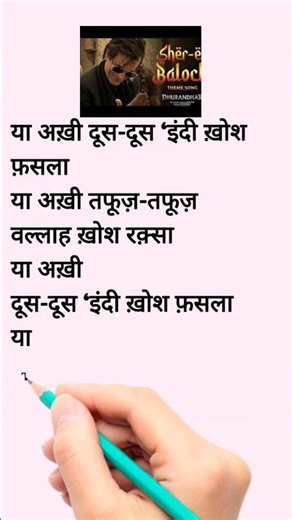 Shër-ë
Baloch
THEME SONG
DHURANDHAR
या अख़ी दूस-दूस ‘इंदी ख़ोश
फ़सला
या अख़ी तफूज़-तफूज़
वल्लाह ख़ोश रक़्सा
या अख़ी
दूस-दूस ‘इंदी ख़ोश फ़सला
या